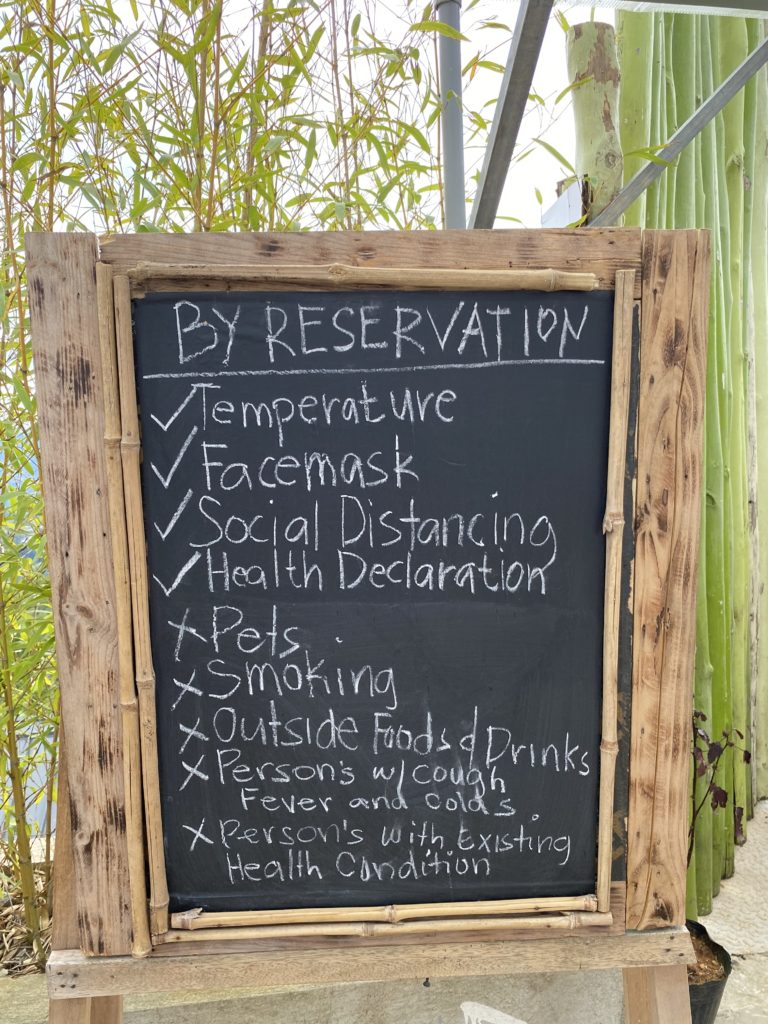 BY RESERVATION
✓ Temperature
✓ Facemask
✓ Social Distancing
✓ Health Declaration
x Pets.
x Smoking
x Outside Foods & Drinks
x Person's w/ cough
Fever and colds.
x Person's with Existing
Health Condition